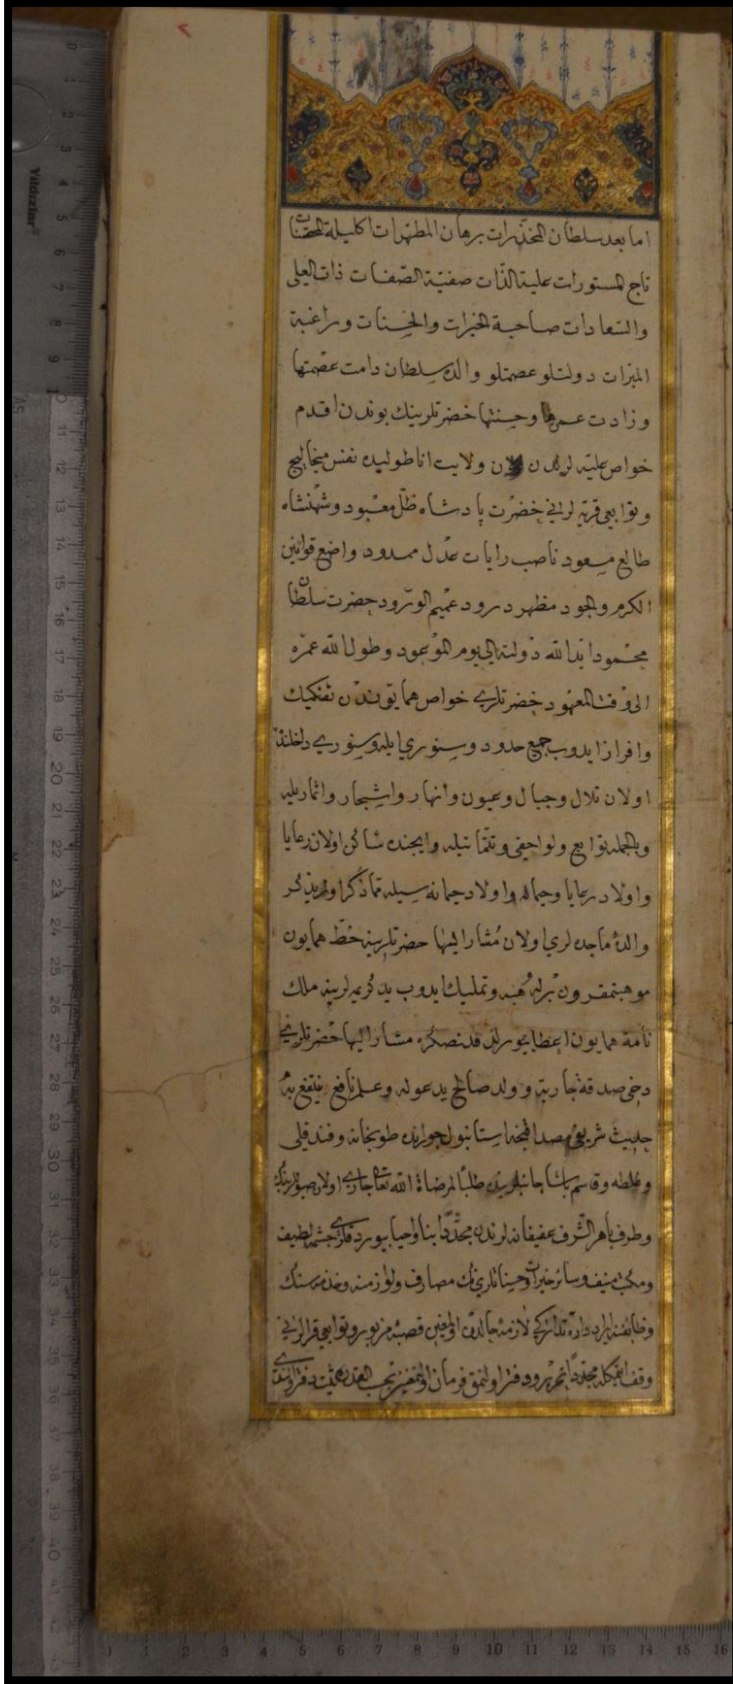 اما بعد سلطان المخدرات برهان المطهرات اكليلة المحصنات
تاج المستورات علية الذات صفية الصفات ذات العلى
والسعادات صاحبة الخيرات والحسنات وراغبة
المبرات دولتلو عصمتلو والده سلطان دامت عصمتها
وزادت عمرها وحسنتها حضرتلرينك بوندن اقدم
خواص عليه لرندن اولان ولايت اناطوليده نفس ميخاليج
وتوابعى قريه لرينى حضرت پادشاه ظل معبود وشهنشاه
طالع مسعود ناصب رايات عدل ممدود واضع قوانين
الكرم والجود مظهر درود عميم الورود حضرت سلطان
محمود ابد الله دولته الى يوم الموعود وطول الله عمره
الى وقت المعهود حضرتلرى خواص همايوندن تفكيك
وافراز ايدوب جميع حدود وسنورى ايله وسنورى داخلنده
اولان تلال وجبال وعيون وانهار واشجار واثماريله
وبالجمله توابع ولواحقى وتتماتيله وايچنده ساكن اولان رعايا
واولاد رعايا وجماله واولاد جمانه سيله تماذكر اولميذكر
والدۀ ماجده لرى اولان مشار اليها حضرتلرينه خط همايون
موهبتمقرون برله هبه وتمليك ايدوب يد كريمه لرينه ملك
نامۀ همايون اعطا بيورلدقدنصكره مشار اليها حضرتلرينى
دخى صدقة جارية و ولد صالح يدعو له وعلم نافع ينتفع به
حديث شريفى مصداقنجه استانبول جوارنده طوبخانه وفندقلى
وغلطه وقاسم پاشا جانبلرينه طلبا لمرضاة الله تعالى جارى اولان صولرينك
وطرف باهر الشرف عفيفانه لرندن مجددا بنا واحيا بيوردقلرى چشمۀ لطيف
ومكتب منيف وسائر خيرات وحسناتلرينك مصارف ولوازمنه وخدمه سنك
وظائفنه ايراد دارۀ تداركى لازمۀ حالدن اولمغين قصبۀ مزبور وتوابعى قرالرينى
وقف ايتمكله مجددا تحرير ودفتر اولنمق فرمان اولنمغين